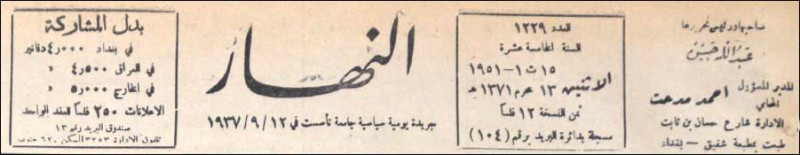 صاحبها ورئيس تحريرها
عبد الله حسن
المدير المسؤول
المحامي
احمد مدحت
الادارة شارع حسان بن ثابت
طبعت بمطبعة شفيق - بغداد
العدد ١٢٢٩
السنة الخامسة عشرة
١٥ ت ١ - ١٩٥١
الاثنين ١٣ محرم ١٣٧١ هـ
ثمن النسخة ١٢ فلساً
مسجلة بدائرة البريد برقم (١٠٤)
النهار
جريدة يومية سياسية جامعة تأسست في ١٢/٩/١٩٣٧
بدل المشاركة
في بغداد ٤٫٠٠٠ دنانير
في العراق ٤٫٥٠٠ »
في الخارج ٥٫٠٠٠ »
الاعلانات ٢٥٠ فلساً للعقد الواحد
صندوق البريد رقم ١٣
تلفون الادارة ٣٢٥٣ السكن ٦٢٠